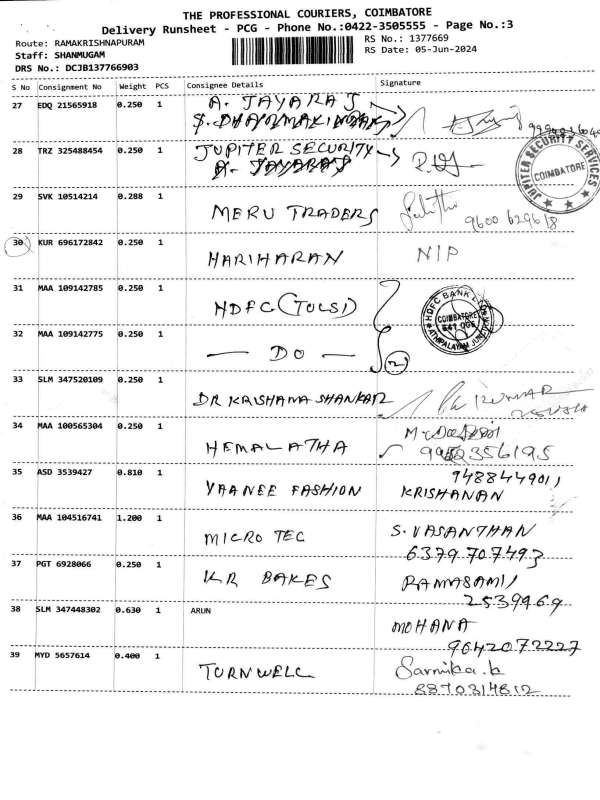 THE PROFESSIONAL COURIERS, COIMBATORE
Delivery Runsheet - PCG - Phone No.:0422-3505555 - Page No.:3
Route: RAMAKRISHNAPURAM
Staff: SHANMUGAM
DRS No.: DCJB137766903
RS No.: 1377669
RS Date: 05-Jun-2024
S No Consignment No Weight PCS Consignee Details Signature
27 EDQ 21565918 0.250 1 A. JAYARAJ
28 TRZ 325488454 0.250 1 JUPITER SECURITY
A. JAYARAJ
JUPITER SECURITY SERVICES
COIMBATORE
29 SVK 10514214 0.288 1 MERU TRADERS
9600 629618
30 KUR 696172842 0.250 1 HARIHARAN NIP
31 MAA 109142785 0.250 1 HDFC (TULSI)
HDFC BANK LTD
COIMBATORE
641 006
32 MAA 109142775 0.250 1 — DO — 2
33 SLM 347520109 0.250 1 DR KRISHANA SHANKAR
KUMAR
34 MAA 100565304 0.250 1 HEMALATHA
35 ASD 3539427 0.810 1 YAANEE FASHION
9488449011
KRISHANAN
36 MAA 104516741 1.200 1 MICRO TEC S. VASANTHAN
6379707493
37 PGT 6928066 0.250 1 KR BAKES RAMASAMI
2539969
38 SLM 347448302 0.630 1 ARUN MOHANA
9042072227
39 MYD 5657614 0.400 1 TURNWELL Sarmika.k
8870314812